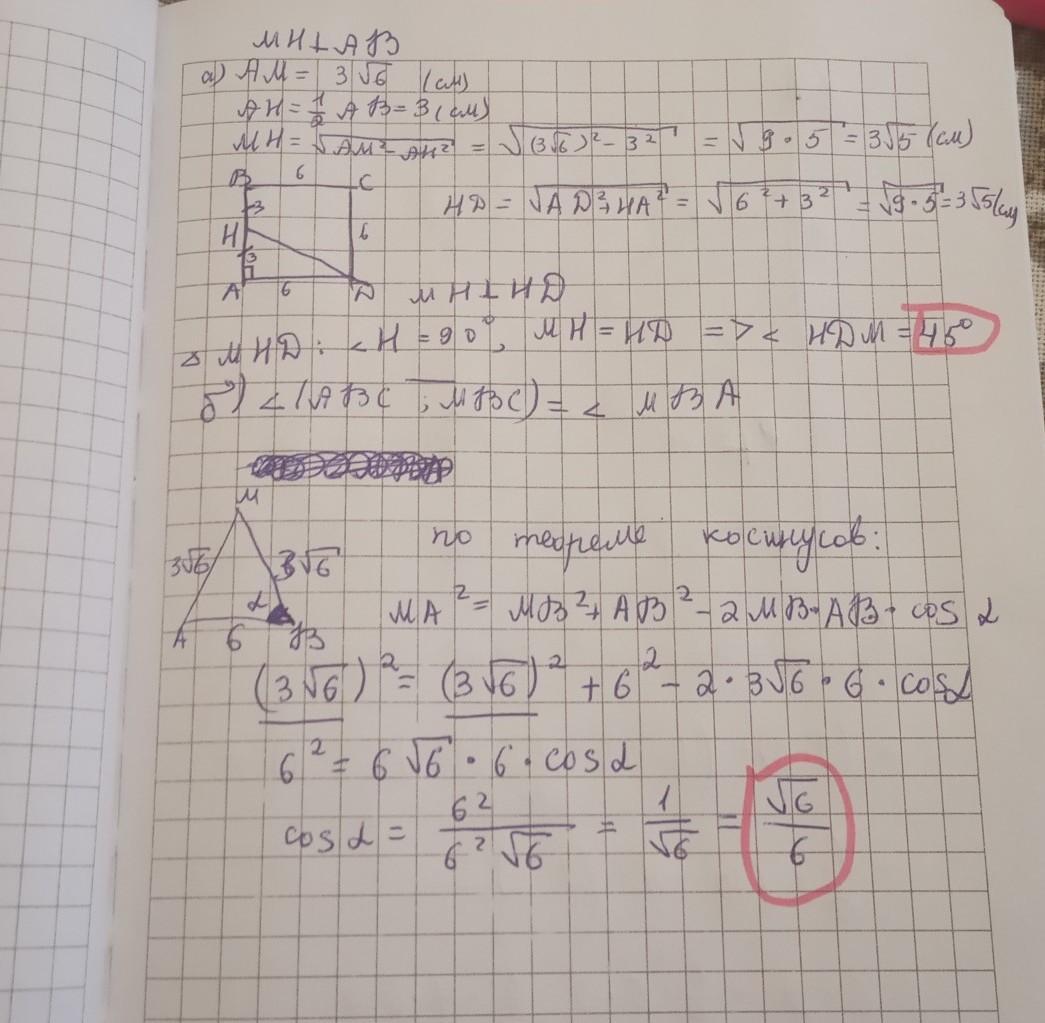 MH⊥AB
а) AM = 3√6 (см)
AH = 1/2 AB = 3 (см)
MH = √AM²-AH² = √(3√6)² - 3² = √9·5 = 3√5 (см)
B 6 C
3
H 6
3
A 6 D
HD = √AD²+HA² = √6²+3² = √9·5 = 3√5 (см)
MH⊥HD
△ MHD: <H = 90°, MH = HD => < HDM = 45°
б) < (ABC ; MBC) = < MBA
M
3√6 3√6
α
A 6 B
по теореме косинусов:
MA² = MB² + AB² - 2MB·AB·cos α
(3√6)² = (3√6)² + 6² - 2·3√6·6·cosα
6² = 6√6·6·cosα
cosα = 6²/6²√6 = 1/√6 = √6/6